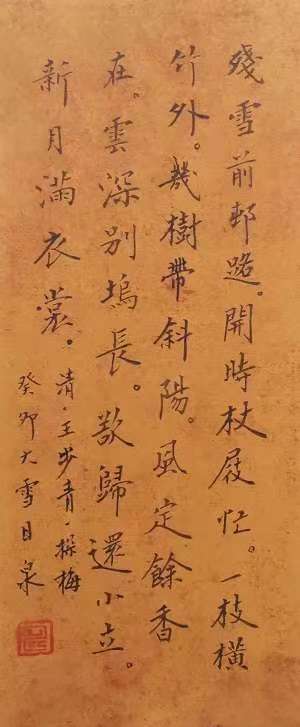 殘雪前邨路。開時杖屐忙。一枝橫
竹外。幾樹帶斜陽。風定餘香
在。雲深別塢長。欲歸還小立。
新月滿衣裳。
清·王步青·探梅
癸卯大雪日泉